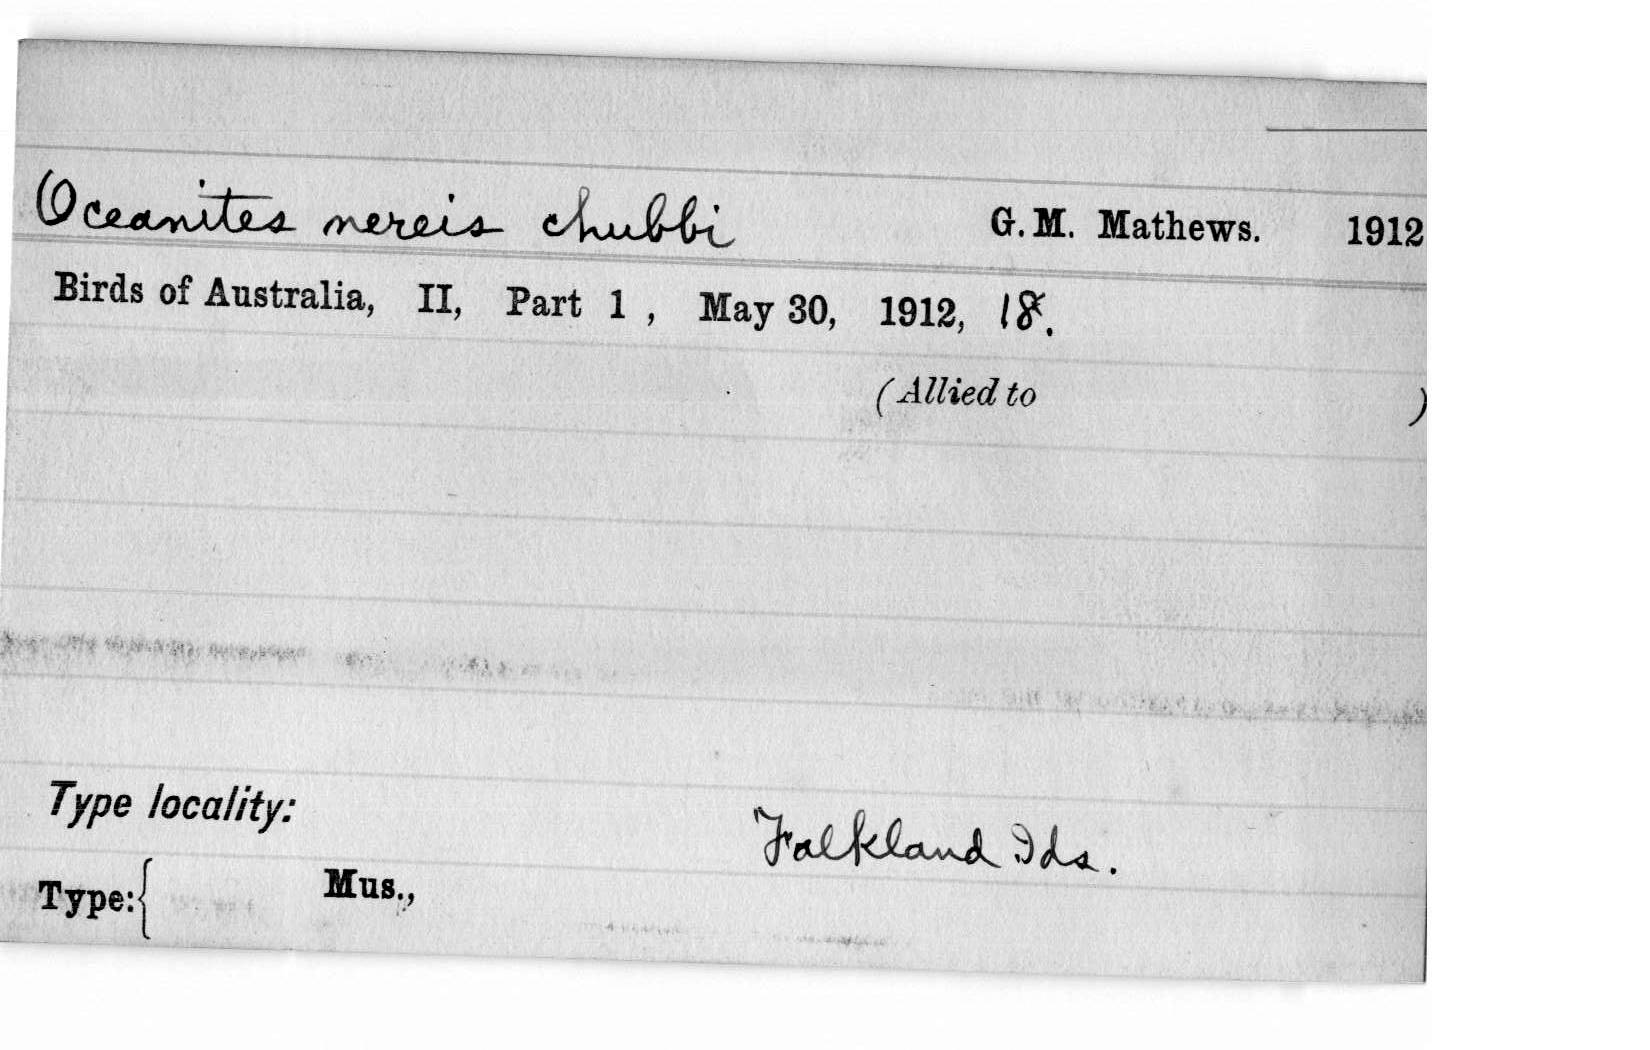 Oceanites nereis chubbi G. M. Mathews. 1912
Birds of Australia, II, Part 1 , May 30, 1912, 18.
(Allied to )
Type locality:
Falkland Ids.
Type:{ Mus.,